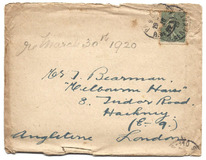 March 30th 1920
Mr J. Bearman,
"Melbourne House"
8. Tudor Road,
Hackney
(E. 9.)
Angleterre London